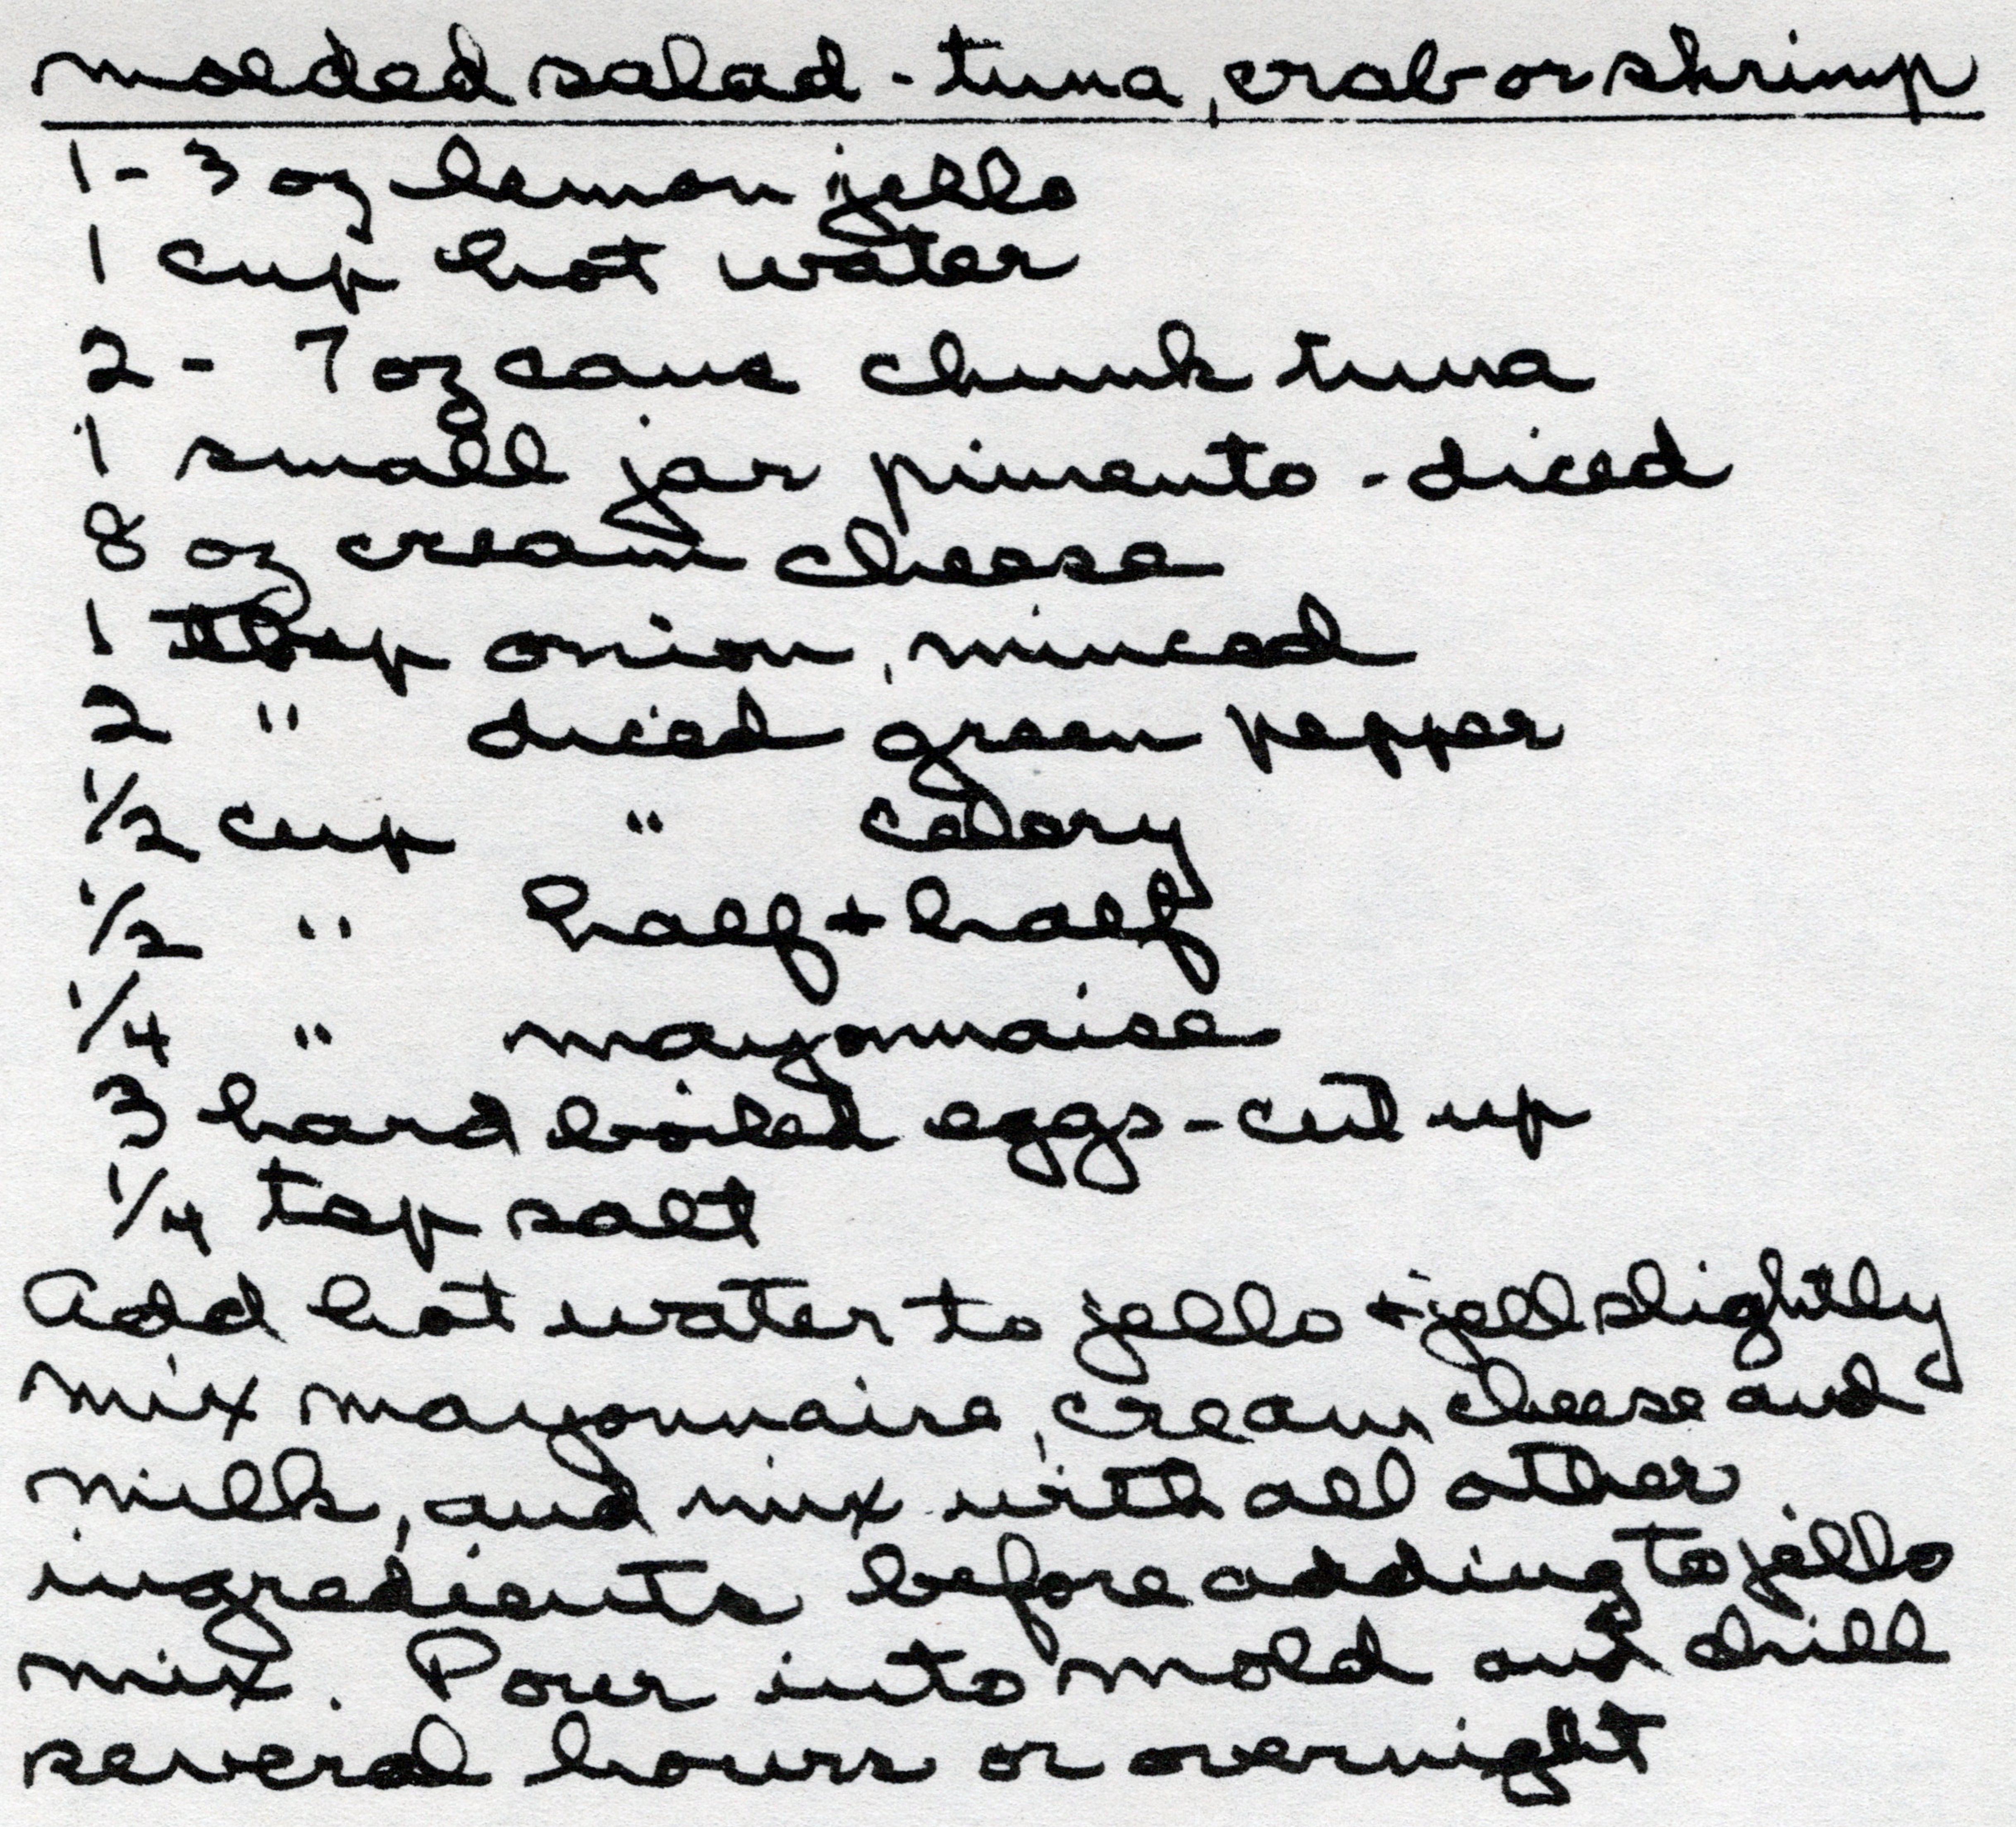 molded salad - tuna, crab or shrimp
1 - 3 oz lemon jello
1 cup hot water
2 - 7 oz cans chunk tuna
1 small jar pimento - diced
8 oz cream cheese
1 tbsp onion, minced
2 " diced green pepper
1/2 cup " celery
1/2 " half + half
1/4 " mayonnaise
3 hard boiled eggs - cut up
1/4 tsp salt
Add hot water to jello + jell slightly
mix mayonnaise, cream cheese and
milk, and mix with all other
ingredients before adding to jello
mix. Pour into mold and chill
several hours or overnight